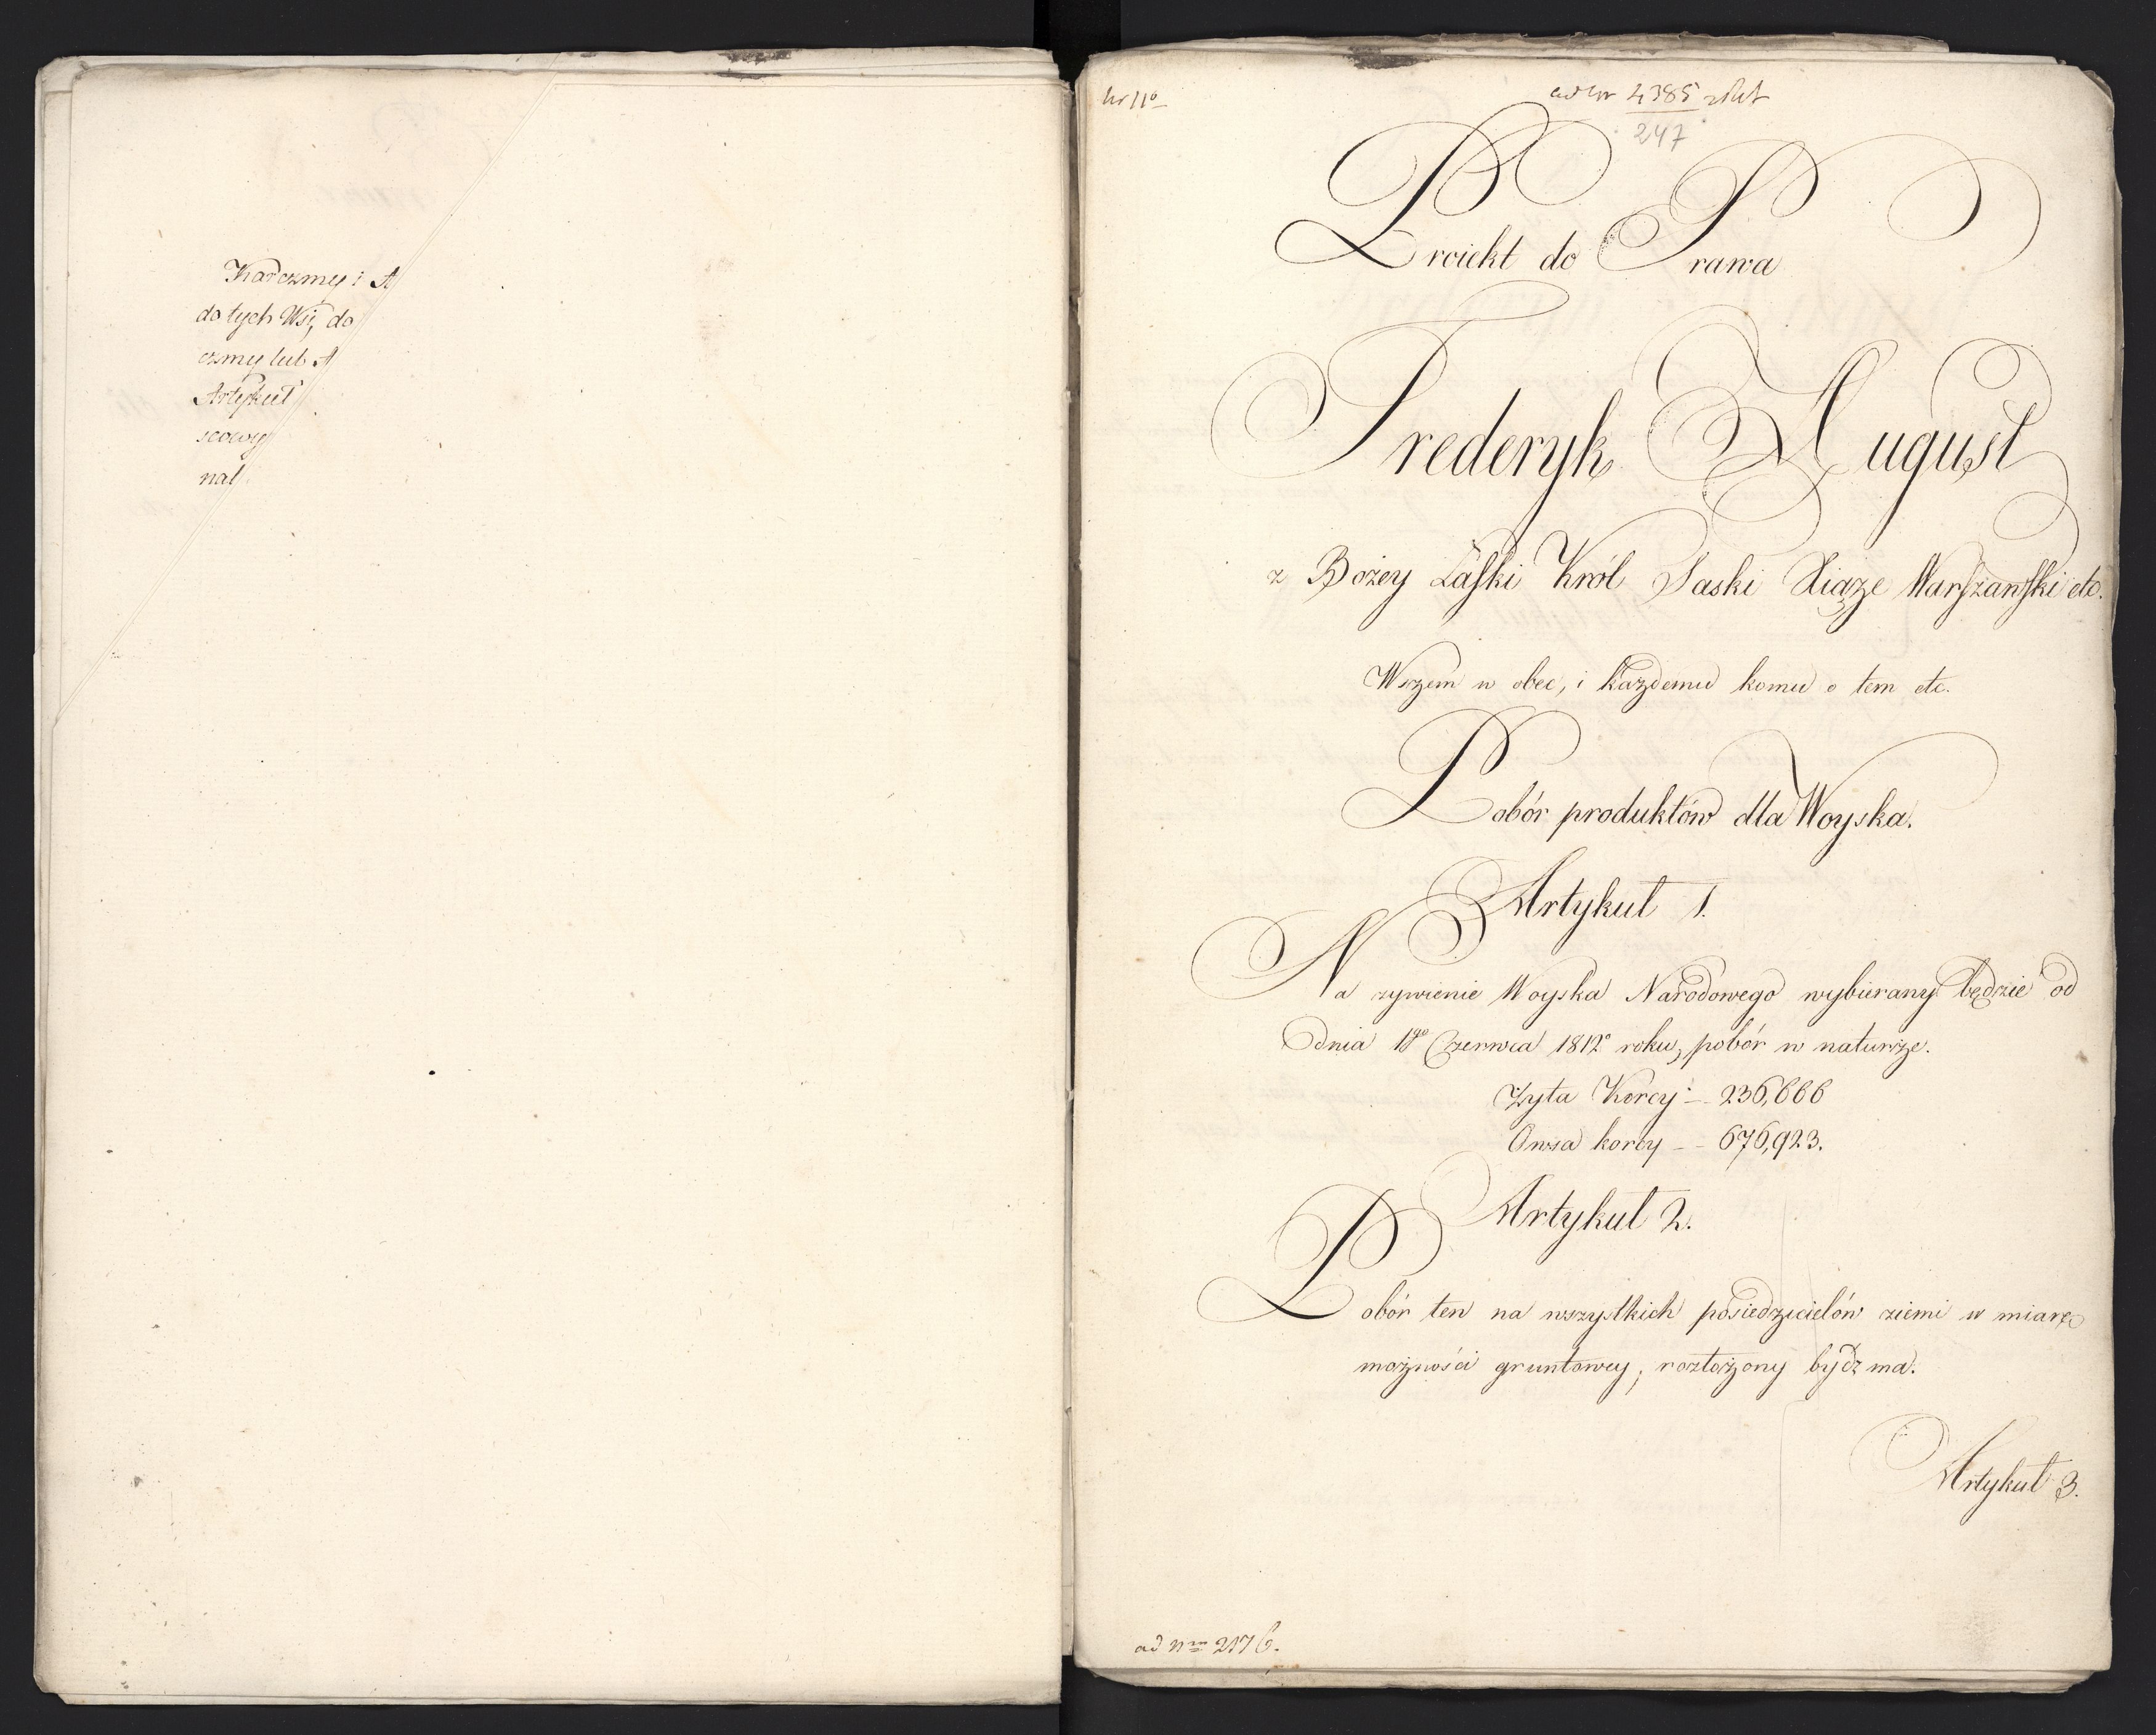 Karczmy i A
do tych Wsi, do
czmy lub A
Artykuł
scowy
nal
Nr 11º
ad Nr 4385
247
Proiekt do Prawa
Frederyk August
z Bożey Łaſki Król Saski Xiąże Warſzawſki etc.
Wszem w obec, i każdemu komu o tem etc.
Pobór produktów dla Woyska.
Artykuł 1.
Na żywienie Woyska Narodowego wybierany będzie od
dnia 1go Czerwca 1812º roku, pobór w naturze.
Żyta Korcy -- 236,666
Owsa korcy -- 676,923.
Artykuł 2.
Pobór ten na wszystkich posiedzicielów ziemi w miarę
możności gruntowey, rozłożony bydź ma.
Artykuł 3.
ad Nrm 2176.